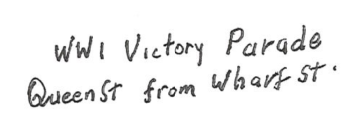 WW1 Victory Parade
Queen St from Wharf St.